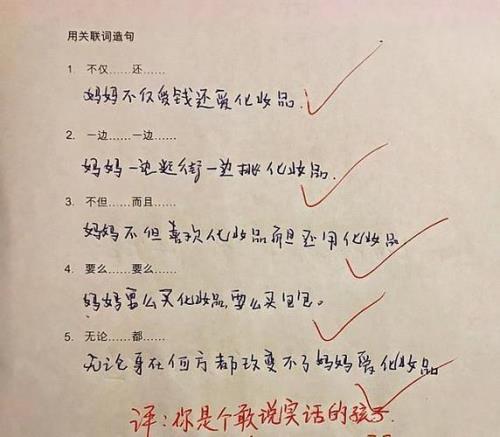 用关联词造句
1. 不仅……还……
妈妈不仅爱钱还爱化妆品.
2. 一边……一边……
妈妈一边逛街一边挑化妆品.
3. 不但……而且……
妈妈不但喜欢化妆品而且还用化妆品
4. 要么……要么……
妈妈要么买化妆品,要么买包包。
5. 无论……都……
无论身在何方都改变不了妈妈爱化妆品
评:你是个敢说实话的孩子.